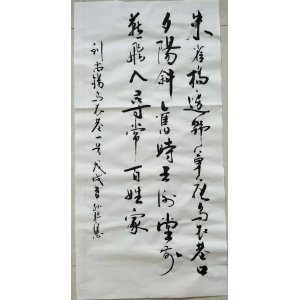 朱雀橋邊野草花烏衣巷口
夕陽斜舊時王謝堂前
燕飛入尋常百姓家
刘禹锡乌衣巷一首戊戌